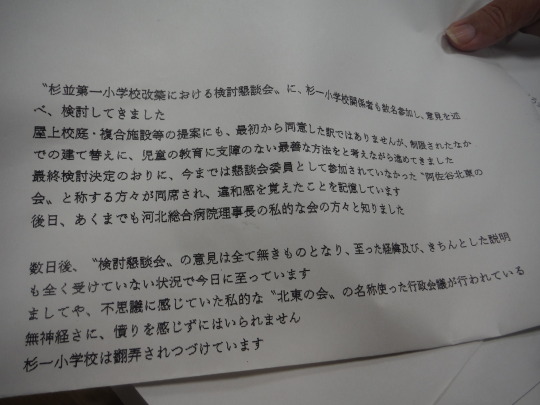 〝杉並第一小学校改築における検討懇談会〟に、杉一小学校関係者も数名参加し、意見を述
べ、検討してきました
屋上校庭・複合施設等の提案にも、最初から同意した訳ではありませんが、制限されたなか
での建て替えに、児童の教育に支障のない最善な方法をと考えながら進めてきました
最終検討決定のおりに、今までは懇談会委員として参加されていなかった〝阿佐谷北東の
会〟と称する方々が同席され、違和感を覚えたことを記憶しています
後日、あくまでも河北総合病院理事長の私的な会の方々と知りました
数日後、〝検討懇談会〟の意見は全て無きものとなり、至った経緯及び、きちんとした説明
も全く受けていない状況で今日に至っています
ましてや、不思議に感じていた私的な〝北東の会〟の名称使った行政会議が行われている
無神経さに、憤りを感じずにはいられません
杉一小学校は翻弄されつづけています